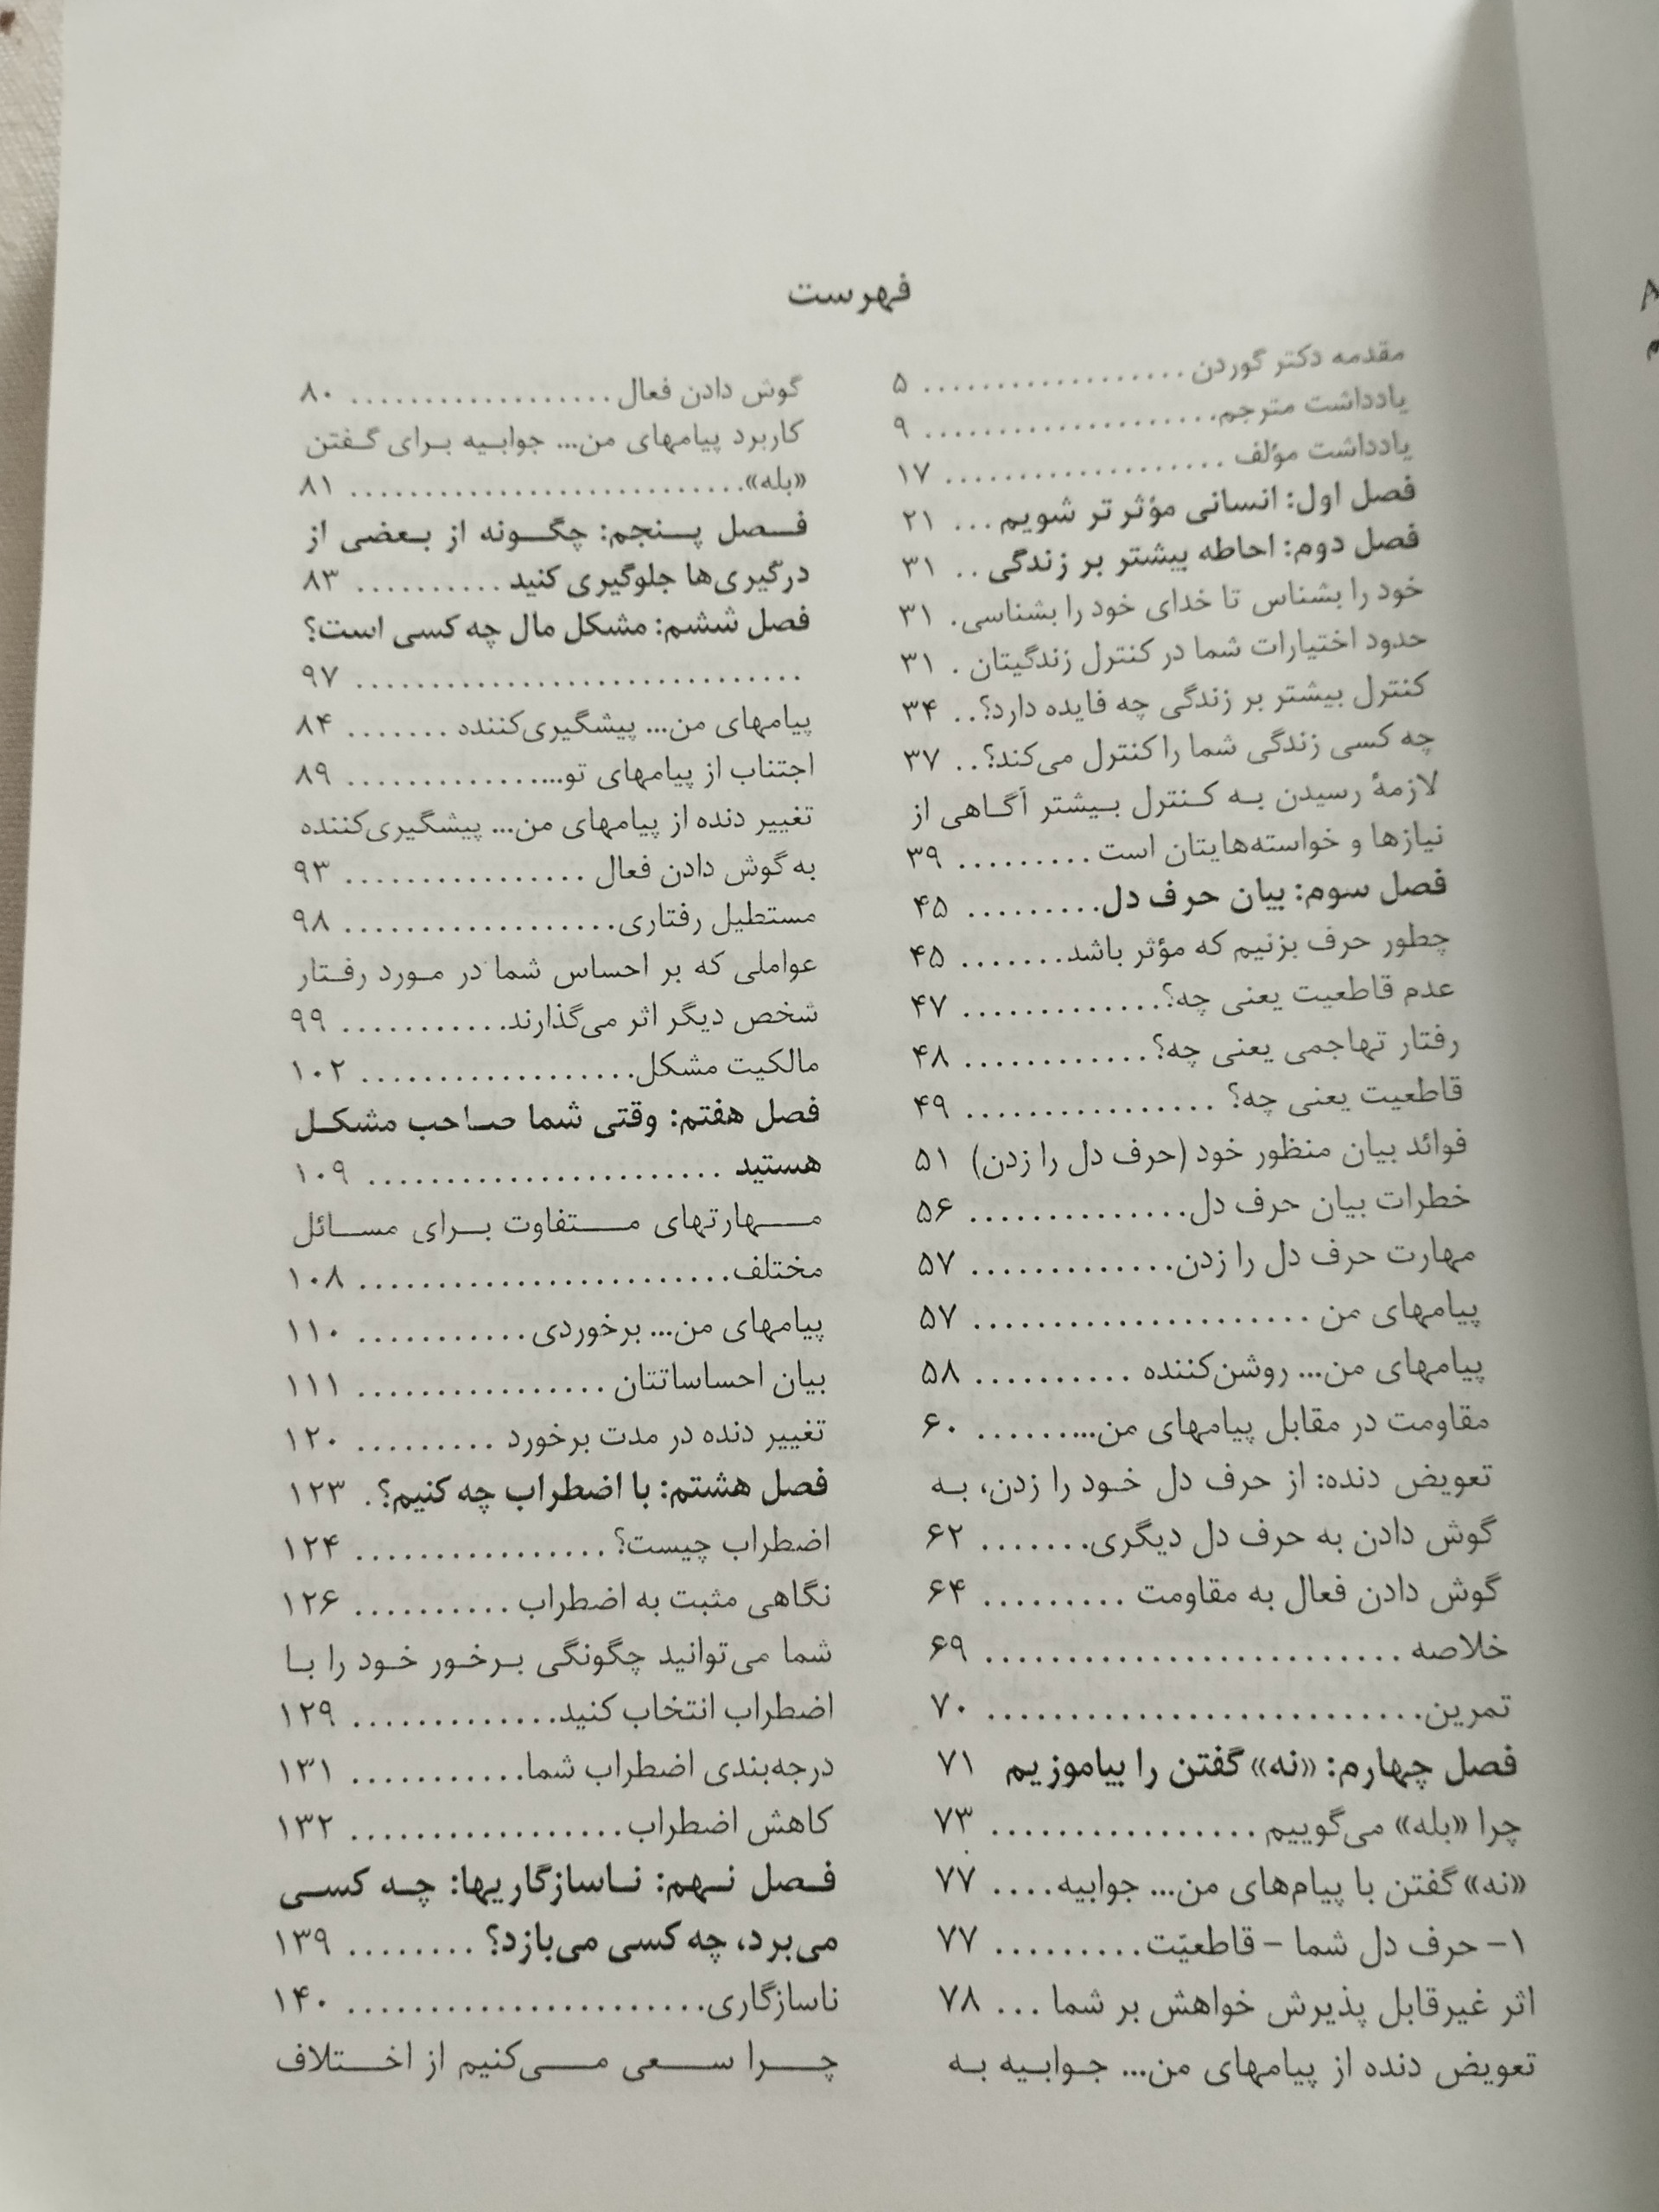 فهرست
مقدمه دکتر گوردن .................. ۵
یادداشت مترجم .................... ۹
یادداشت مؤلف .................... ۱۷
فصل اول: انسانی مؤثرتر شویم ... ۲۱
فصل دوم: احاطه بیشتر بر زندگی .. ۳۱
خود را بشناس تا خدای خود را بشناسی . ۳۱
حدود اختیارات شما در کنترل زندگیتان . ۳۱
کنترل بیشتر بر زندگی چه فایده دارد؟ .. ۳۴
چه کسی زندگی شما را کنترل می‌کند؟ .. ۳۷
لازمهٔ رسیدن به کنترل بیشتر آگاهی از
نیازها و خواسته‌هایتان است ......... ۳۹
فصل سوم: بیان حرف دل ......... ۴۵
چطور حرف بزنیم که مؤثر باشد ....... ۴۵
عدم قاطعیت یعنی چه؟ ............. ۴۷
رفتار تهاجمی یعنی چه؟ ............ ۴۸
قاطعیت یعنی چه؟ ................ ۴۹
فوائد بیان منظور خود (حرف دل را زدن) ۵۱
خطرات بیان حرف دل .............. ۵۶
مهارت حرف دل را زدن ............. ۵۷
پیامهای من ..................... ۵۷
پیامهای من... روشن‌کننده .......... ۵۸
مقاومت در مقابل پیامهای من... ...... ۶۰
تعویض دنده: از حرف دل خود را زدن، به
گوش دادن به حرف دل دیگری ....... ۶۲
گوش دادن فعال به مقاومت ......... ۶۴
خلاصه .......................... ۶۹
تمرین ........................... ۷۰
فصل چهارم: «نه» گفتن را بیاموزیم ۷۱
چرا «بله» می‌گوییم ................ ۷۳
«نه» گفتن با پیام‌های من... جوابیه .... ۷۷
۱- حرف دل شما - قاطعیّت ......... ۷۷
اثر غیرقابل پذیرش خواهش بر شما ... ۷۸
تعویض دنده از پیامهای من... جوابیه به
گوش دادن فعال .................. ۸۰
کاربرد پیامهای من... جوابیه برای گفتن
«بله» .......................... ۸۱
فصل پنجم: چگونه از بعضی از
درگیری‌ها جلوگیری کنید .......... ۸۳
فصل ششم: مشکل مال چه کسی است؟
............................ ۹۷
پیامهای من... پیشگیری‌کننده ....... ۸۴
اجتناب از پیامهای تو... ............. ۸۹
تغییر دنده از پیامهای من... پیشگیری‌کننده
به گوش دادن فعال ................ ۹۳
مستطیل رفتاری .................. ۹۸
عواملی که بر احساس شما در مورد رفتار
شخص دیگر اثر می‌گذارند ........... ۹۹
مالکیت مشکل .................. ۱۰۲
فصل هفتم: وقتی شما صاحب مشکل
هستید ....................... ۱۰۹
مهارتهای متفاوت برای مسائل
مختلف ........................ ۱۰۸
پیامهای من... برخوردی ........... ۱۱۰
بیان احساساتتان ................ ۱۱۱
تغییر دنده در مدت برخورد ......... ۱۲۰
فصل هشتم: با اضطراب چه کنیم؟ . ۱۲۳
اضطراب چیست؟ ................ ۱۲۴
نگاهی مثبت به اضطراب .......... ۱۲۶
شما می‌توانید چگونگی برخور خود را با
اضطراب انتخاب کنید ............. ۱۲۹
درجه‌بندی اضطراب شما ........... ۱۳۱
کاهش اضطراب ................. ۱۳۲
فصل نهم: ناسازگاریها: چه کسی
می‌برد، چه کسی می‌بازد؟ ........ ۱۳۹
ناسازگاری ...................... ۱۴۰
چرا سعی می‌کنیم از اختلاف